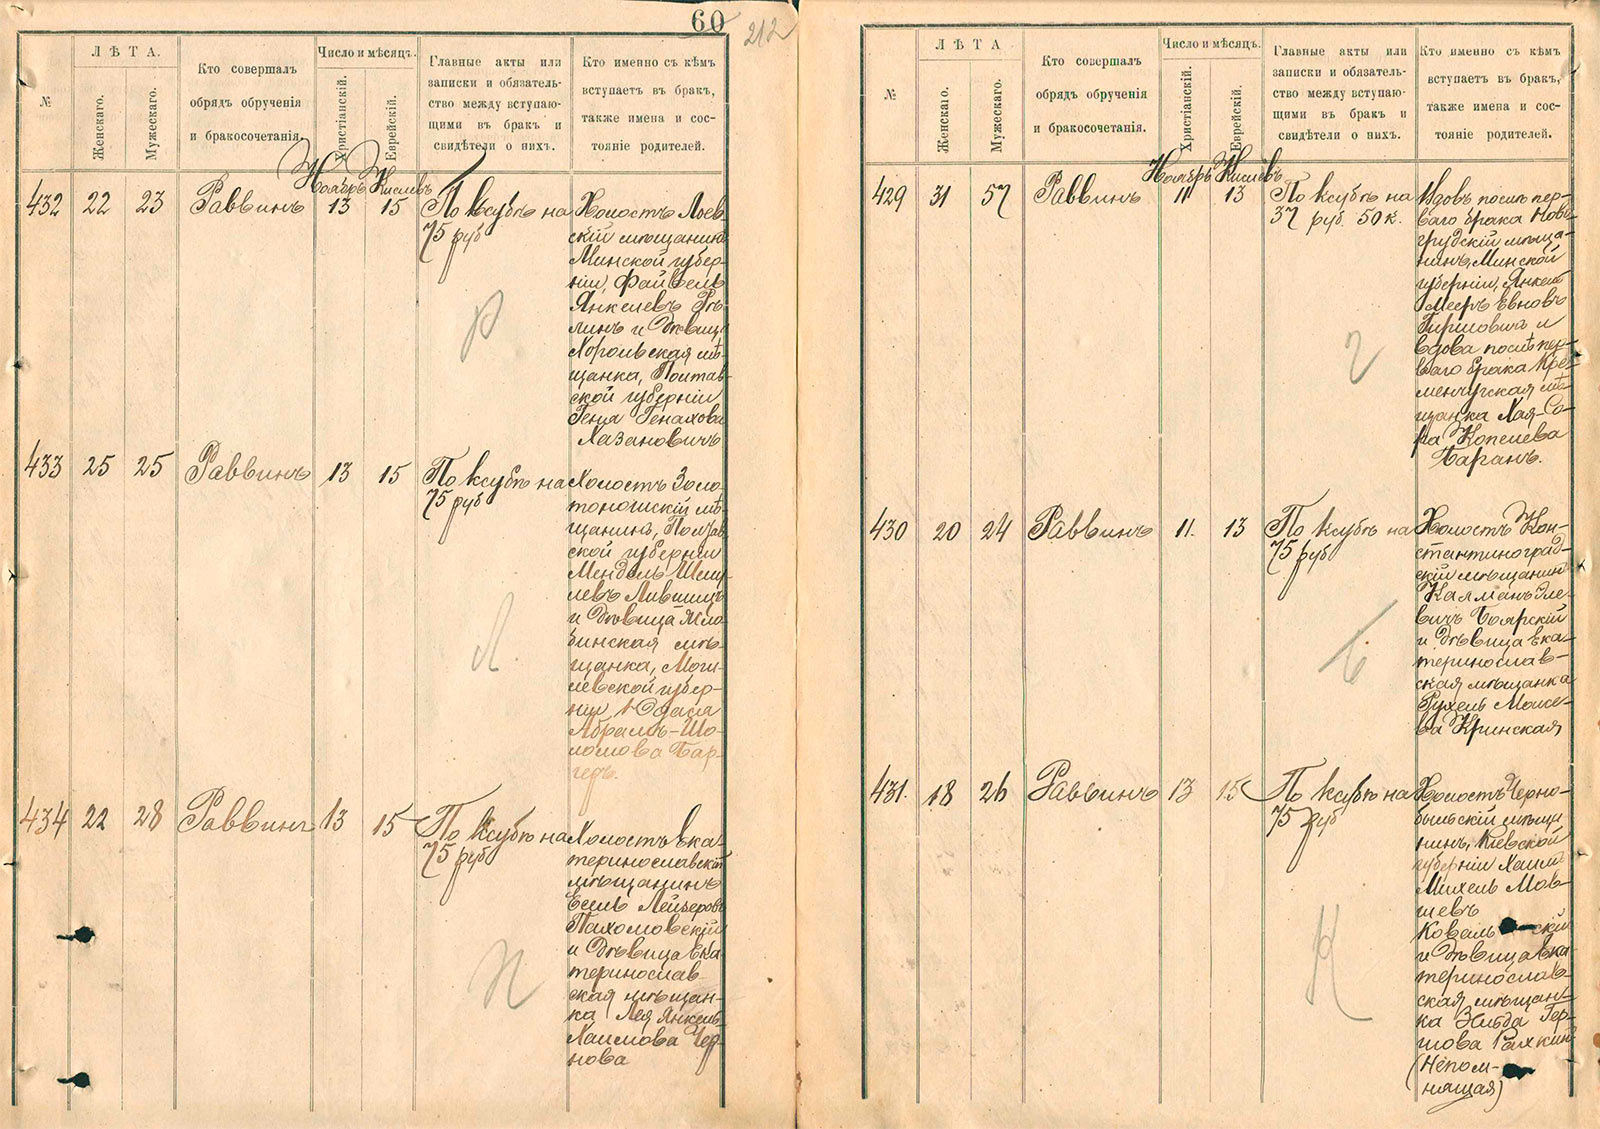 60
212
№
ЛѢТА.
Женскаго.
Мужескаго.
Кто совершалъ
обрядъ обрученія
и бракосочетанія.
Число и мѣсяцъ.
Христіанскій.
Еврейскій.
Главные акты или
записки и обязатель-
ство между вступаю-
щими въ бракъ и
свидѣтели о нихъ.
Кто именно съ кѣмъ
вступаетъ въ бракъ,
также имена и сос-
тояніе родителей.
Ноябрь Кислевъ
432 22 23 Раввинъ 13 15 По ксубѣ на
75 руб
Холостъ Лоев
скій мѣщанинъ
Минской губер-
ніи, Файвель
Янкелевъ Рѣ-
линъ и дѣвица
Хорольская мѣ-
щанка, Полтав-
ской губерніи
Геня Генахова
Хазановичъ
Р
433 25 25 Раввинъ 13 15 По ксубѣ на
75 руб
Холостъ Золо-
тоношскій мѣ-
щанинъ, Полтав-
ской губерніи
Мендель Шему-
левъ Лившицъ
и дѣвица Жло-
бинская мѣ-
щанка, Моги-
левской губер-
ніи Юдася
Абрамъ-Шо-
ломова Бар-
гедъ.
Л
434 22 28 Раввинъ 13 15 По ксубѣ на
75 руб
Холостъ Ека-
теринославскій
мѣщанинъ
Есель Лейзеровъ
Пахомовскій
и дѣвица Ека
теринослав-
ская мѣщан-
ка Лея Янкель-
Хаимова Чер-
нова
П
№
ЛѢТА
Женскаго.
Мужескаго.
Кто совершалъ
обрядъ обрученія
и бракосочетанія.
Число и мѣсяцъ.
Христіанскій.
Еврейскій.
Главные акты или
записки и обязатель-
ство между вступаю-
щими въ бракъ и
свидѣтели о нихъ.
Кто именно съ кѣмъ
вступаетъ въ бракъ,
также имена и сос-
тояніе родителей.
Ноябрь Кислевъ
429 31 57 Раввинъ 11 13 По ксубѣ на
37 руб. 50 к.
Вдовъ послѣ пер-
ваго брака Ново-
грудскій мѣща-
нинъ, Минской
губерніи, Янкель
Мееръ Евновъ
Гиршовичъ и
вдова послѣ пер-
ваго брака Кре-
менчугская мѣ-
щанка Хая-Са-
ра Копелева
Баранъ.
Г
430 20 24 Раввинъ 11. 13 По ксубѣ на
75 руб
Холостъ Кон-
стантиноград-
скій мѣщанинъ
Калманъ Эле-
вичъ Боярскій
и дѣвица Ека-
теринослав-
ская мѣщанка
Рухель Моисе-
ева Кринская
Б
431. 18 26 Раввинъ 13 15 По ксубѣ на
75 руб
Холостъ Черно-
быльскій мѣща
нинъ, Кіевской
губерніи Хаимъ
Михель Мов-
шевъ
Коваль скій
и дѣвица Ека
теринослав-
ская мѣщан-
ка Зельда Гер-
шова Рахкинъ
(Непом-
нящая)
К